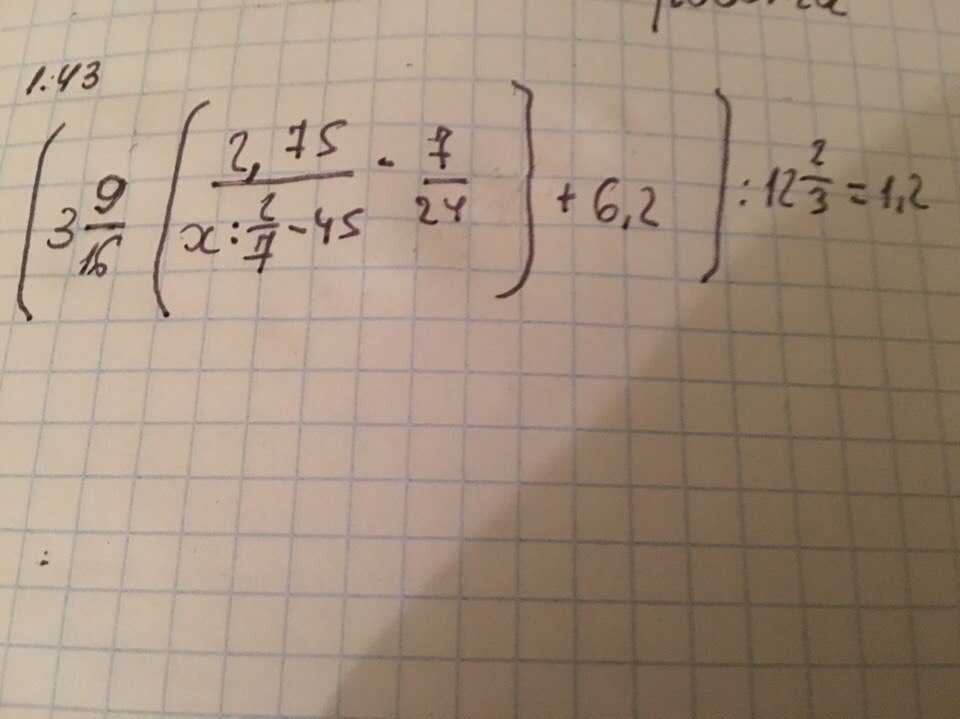 1.43
(3 9/16 (2,75/(x : 2/7 - 45) - 7/24) + 6,2) : 12 2/3 = 1,2